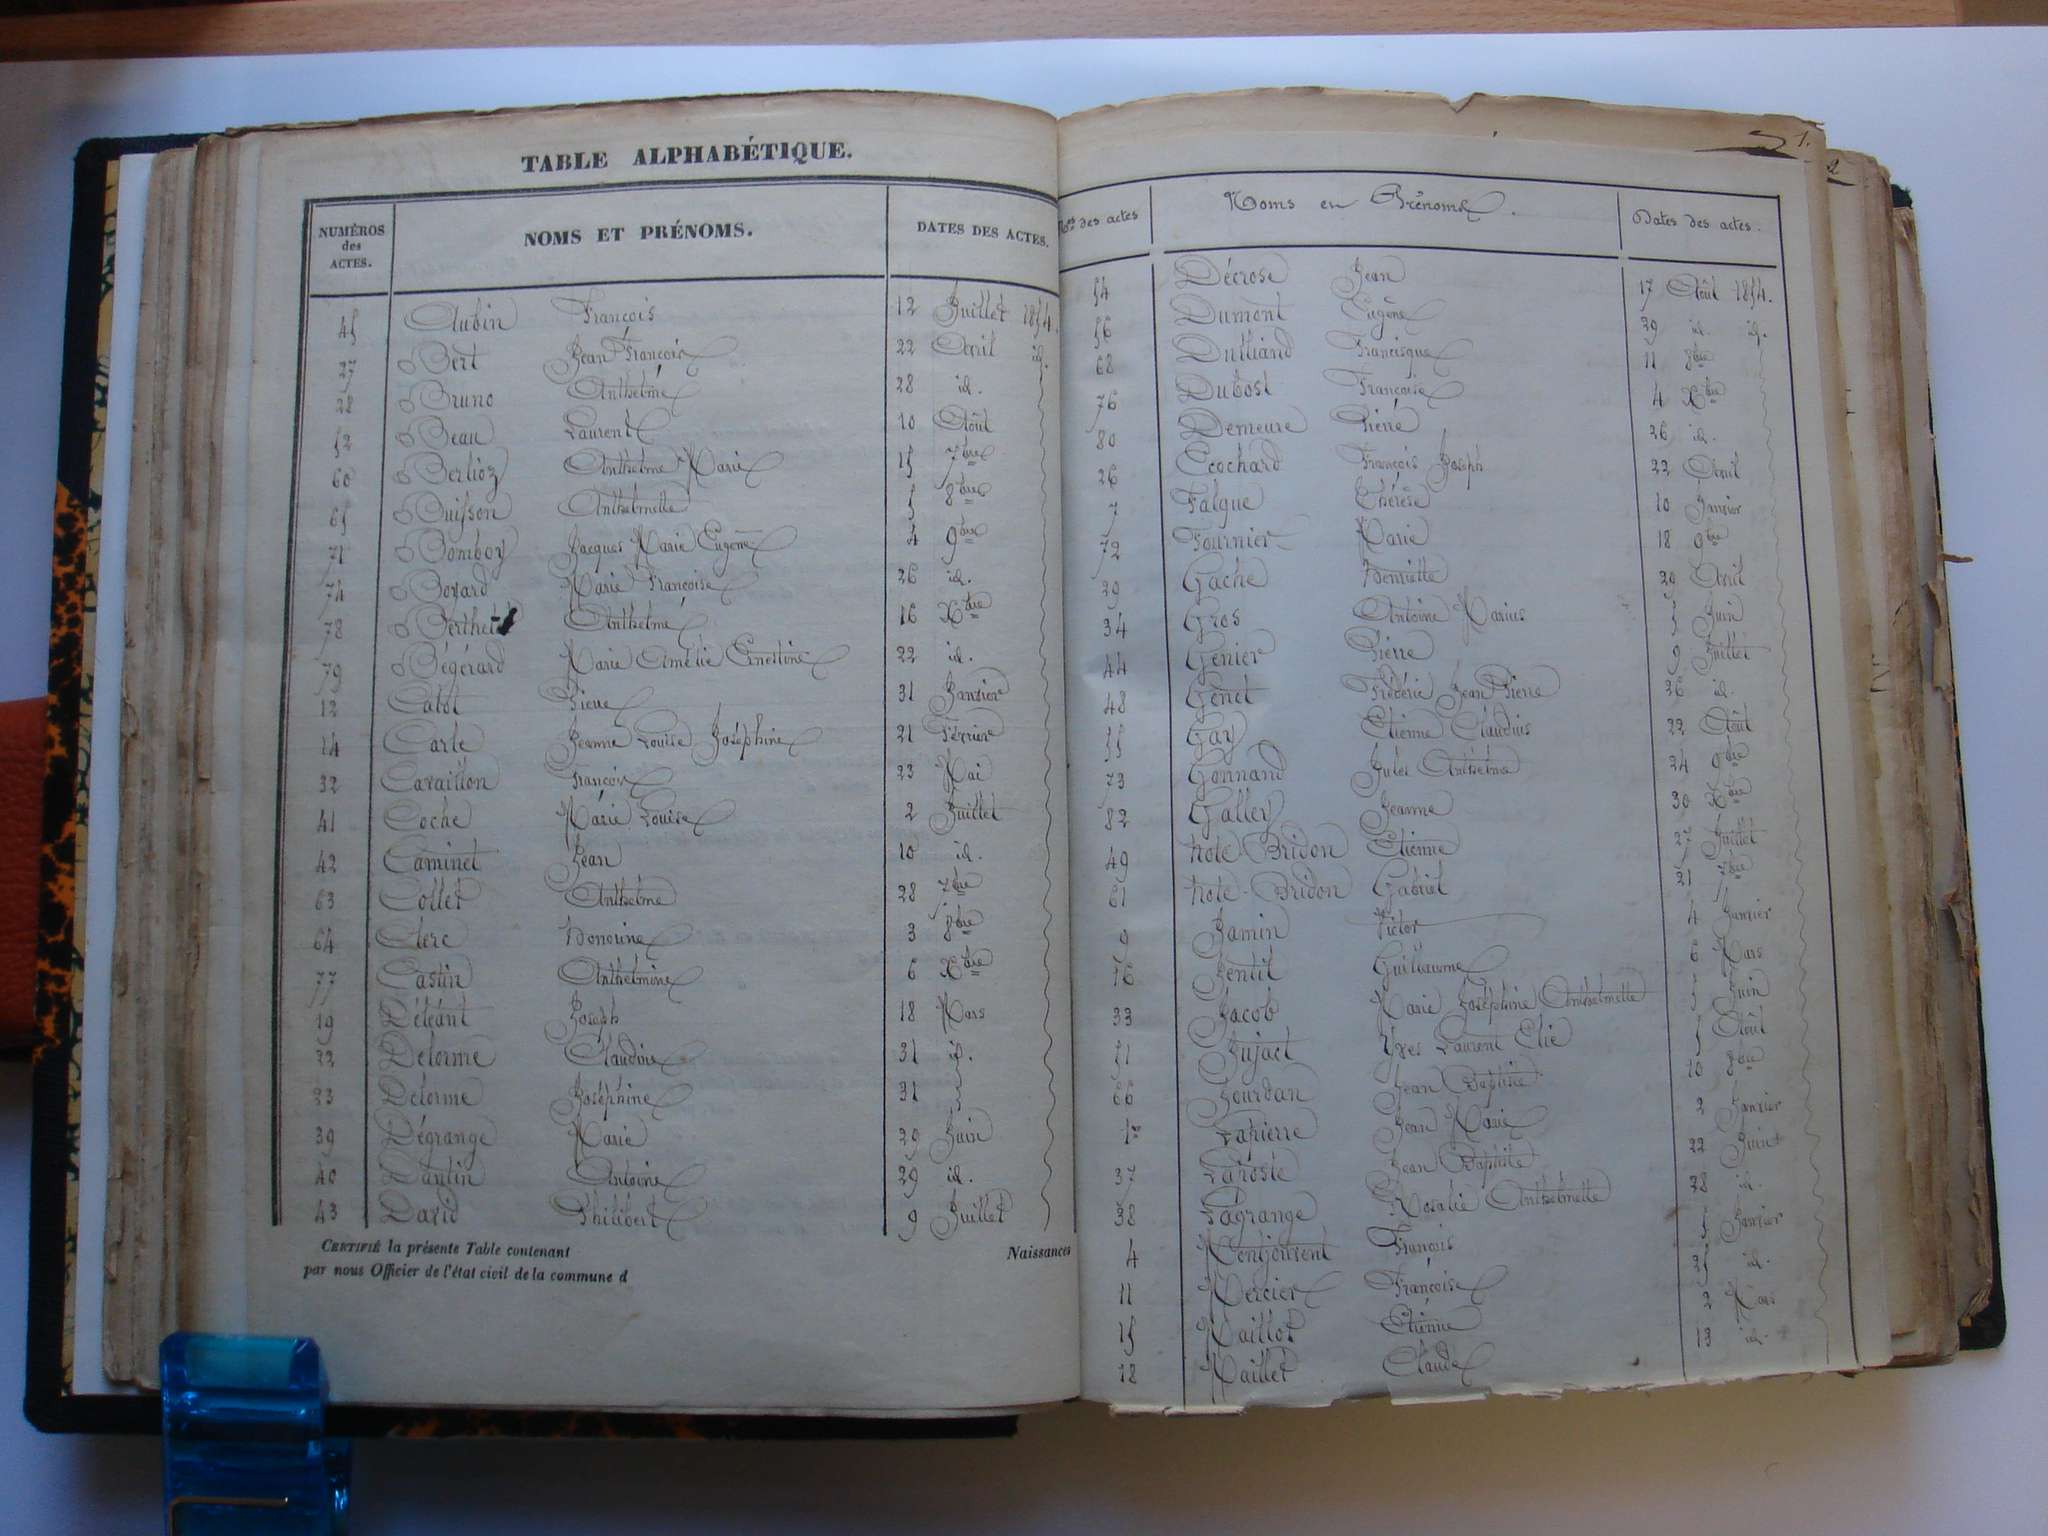 TABLE ALPHABÉTIQUE.
NUMÉROS des ACTES. NOMS ET PRÉNOMS. DATES DES ACTES.
45 Aubin François 12 Juillet 1854.
27 Bert Jean François 22 Avril id.
28 Bruno Anthelme 28 id.
52 Beau Laurent 10 Août
60 Berlioz Anthelme Marie 15 7bre
65 Buisson Anthelmette 5 8bre
71 Bomboy Jacques Marie Eugène 4 9bre
74 Boyard Marie Françoise 26 id.
78 Berthet Anthelme 16 Xbre
79 Bégérard Marie Amélie Ernestine 22 id.
12 Catot Pierre 31 Janvier
14 Carle Jeanne Louise Joséphine 21 Février
32 Cavaillon François 23 Mai
41 Coche Marie Louise 2 Juillet
42 Caminet Jean 10 id.
63 Collet Anthelme 28 7bre
64 Clerc Honorine 3 8bre
77 Castin Anthelmine 6 Xbre
19 Déléant Joseph 18 Mars
22 Delorme Claudine 31 id.
23 Delorme Joséphine 31
39 Dégrange Marie 29 Juin
40 Dantin Antoine 29 id.
43 David Philibert 9 Juillet
CERTIFIÉ la présente Table contenant Naissances
par nous Officier de l'état civil de la commune d
1.
2
Nos des actes Noms en Prénoms. Dates des actes.
54 Décrose Jean 17 Août 1854.
56 Dumont Eugène 29 id. id.
68 Dulliand Francisque 11 8bre
76 Dubost Françoise 4 Xbre
80 Demeure Pierre 26 id.
26 Ecochard François Joseph 22 Avril
7 Falque Thérèse 10 Janvier
72 Fournier Marie 18 9bre
29 Gache Henriette 29 Avril
34 Gros Antoine Marius 5 Juin
44 Genier Pierre 9 Juillet
48 Genet Frédéric Jean Pierre 26 id.
55 Gay Etienne Claudius 22 Août
73 Gonnand Jules Anthelme 24 9bre
82 Galley Jeanne 30 Xbre
49 hote-Bridon Etienne 27 Juillet
61 hote-Bridon Gabriel 21 7bre
9 Jamin Victor 4 Janvier
16 Jentil Guillaume 6 Mars
33 Jacob Marie Joséphine Anthelmette 5 Juin
51 Jujact Yves Laurent Elie 5 Août
66 Jourdan Jean Baptiste 10 8bre
1er Lapierre Jean Marie 2 Janvier
37 Larose Jean Baptiste 22 Juin
38 Lagrange Rosalie Anthelmette 28 id.
4 Montjouvent François 5 Janvier
11 Mercier Françoise 25 id.
15 Maillot Etienne 2 Mars
18 Maillet Claude 13 id.